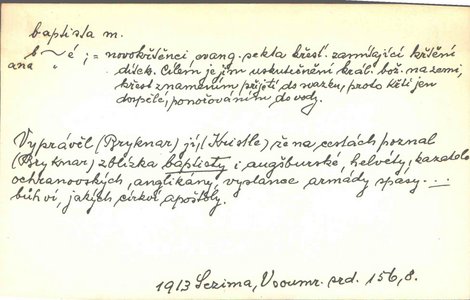 baptista m.
b~é ; = novokřtěnci evang. sekta křesť. zamítající křtění
ana " dítek. Cílem je jim uskutečnění král. bož. na zemi,
křest znamením přijetí do svazku, proto křtí jen
dospělé, ponořováním do vody.
Vyprávěl (Bryknar) jí, (Kristle) že na cestách poznal
(Bryknar) zblízka baptisty i augšburské helvéty, kazatele
ochranovských, anglikány, vyslance armády spásy ...
bůh ví, jakých církví apoštoly.
1913 Sezima, V soumr. srd. 156, 8.